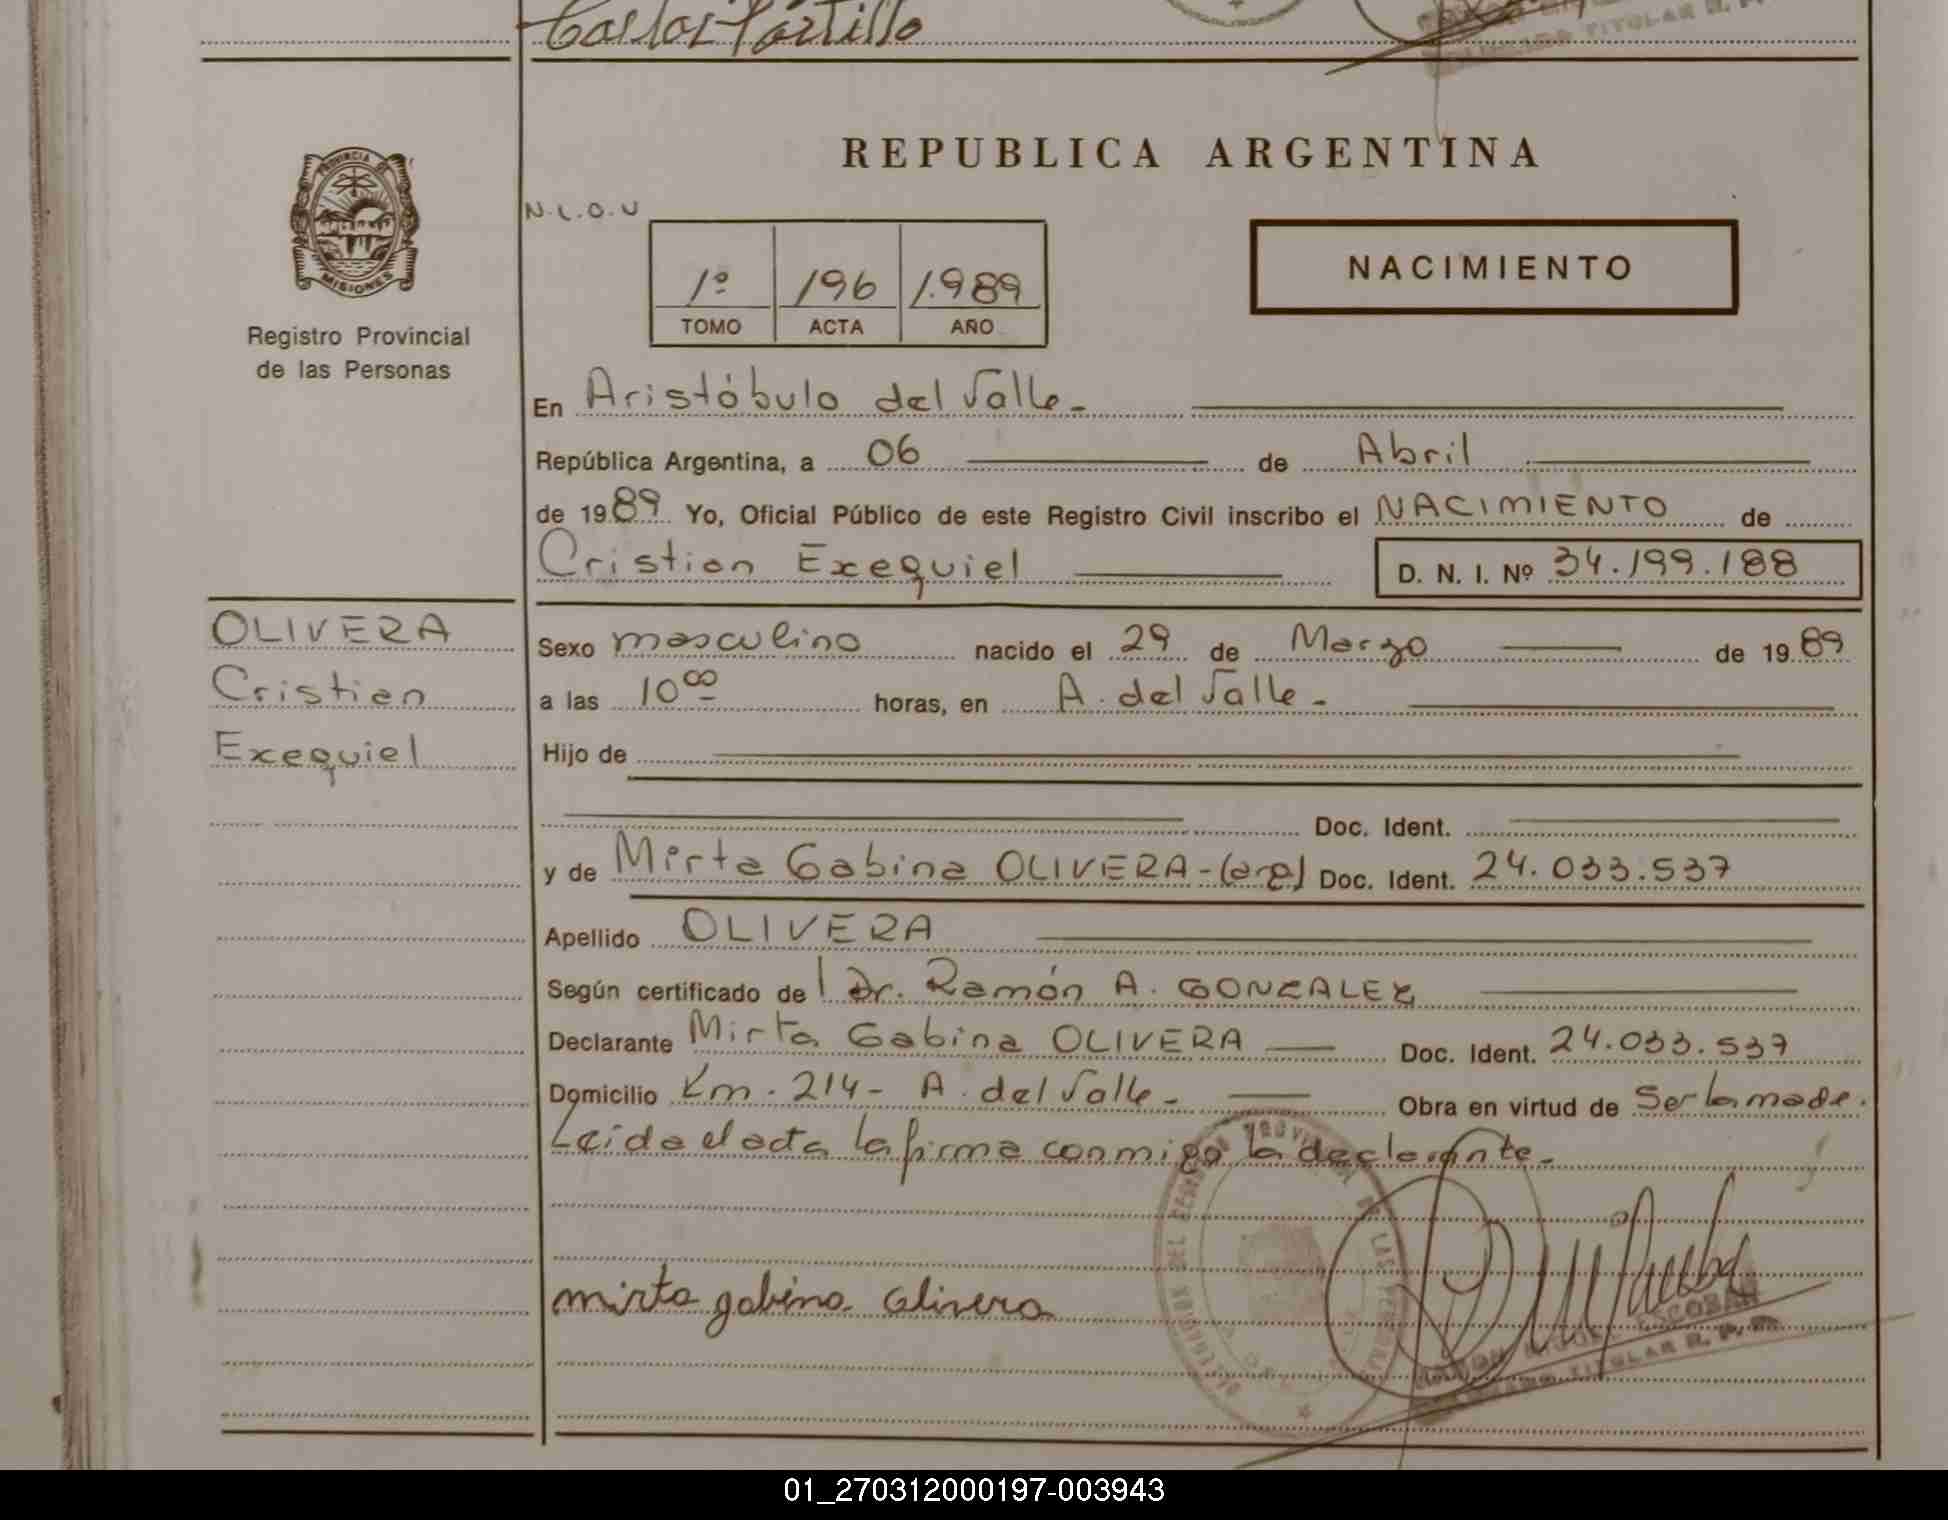 Carlos Portillo
TITULAR R. P.
PROVINCIA DE
MISIONES
Registro Provincial
de las Personas
REPUBLICA ARGENTINA
N.L.O.U
1º 196 1.989
TOMO ACTA AÑO
NACIMIENTO
En Aristóbulo del Valle.-
República Argentina, a 06 de Abril
de 1989 Yo, Oficial Público de este Registro Civil inscribo el NACIMIENTO de
Cristian Exequiel D. N. I. Nº 34.199.188
OLIVERA
Cristian
Exequiel
Sexo masculino nacido el 29 de Marzo de 1989
a las 10 00 horas, en A. del Valle.-
Hijo de
Doc. Ident.
y de Mirta Gabina OLIVERA-(arg) Doc. Ident. 24.033.537
Apellido OLIVERA
Según certificado de l Dr. Ramón A. GONZALEZ
Declarante Mirta Gabina OLIVERA Doc. Ident. 24.033.537
Domicilio Km. 214- A. del Valle.- Obra en virtud de Ser la madre.
Leida el acta la firma conmigo la declarante.-
mirta gabina olivera
RAMON MIGUEL ESCOBAR
TITULAR R. P. P.
01_270312000197-003943